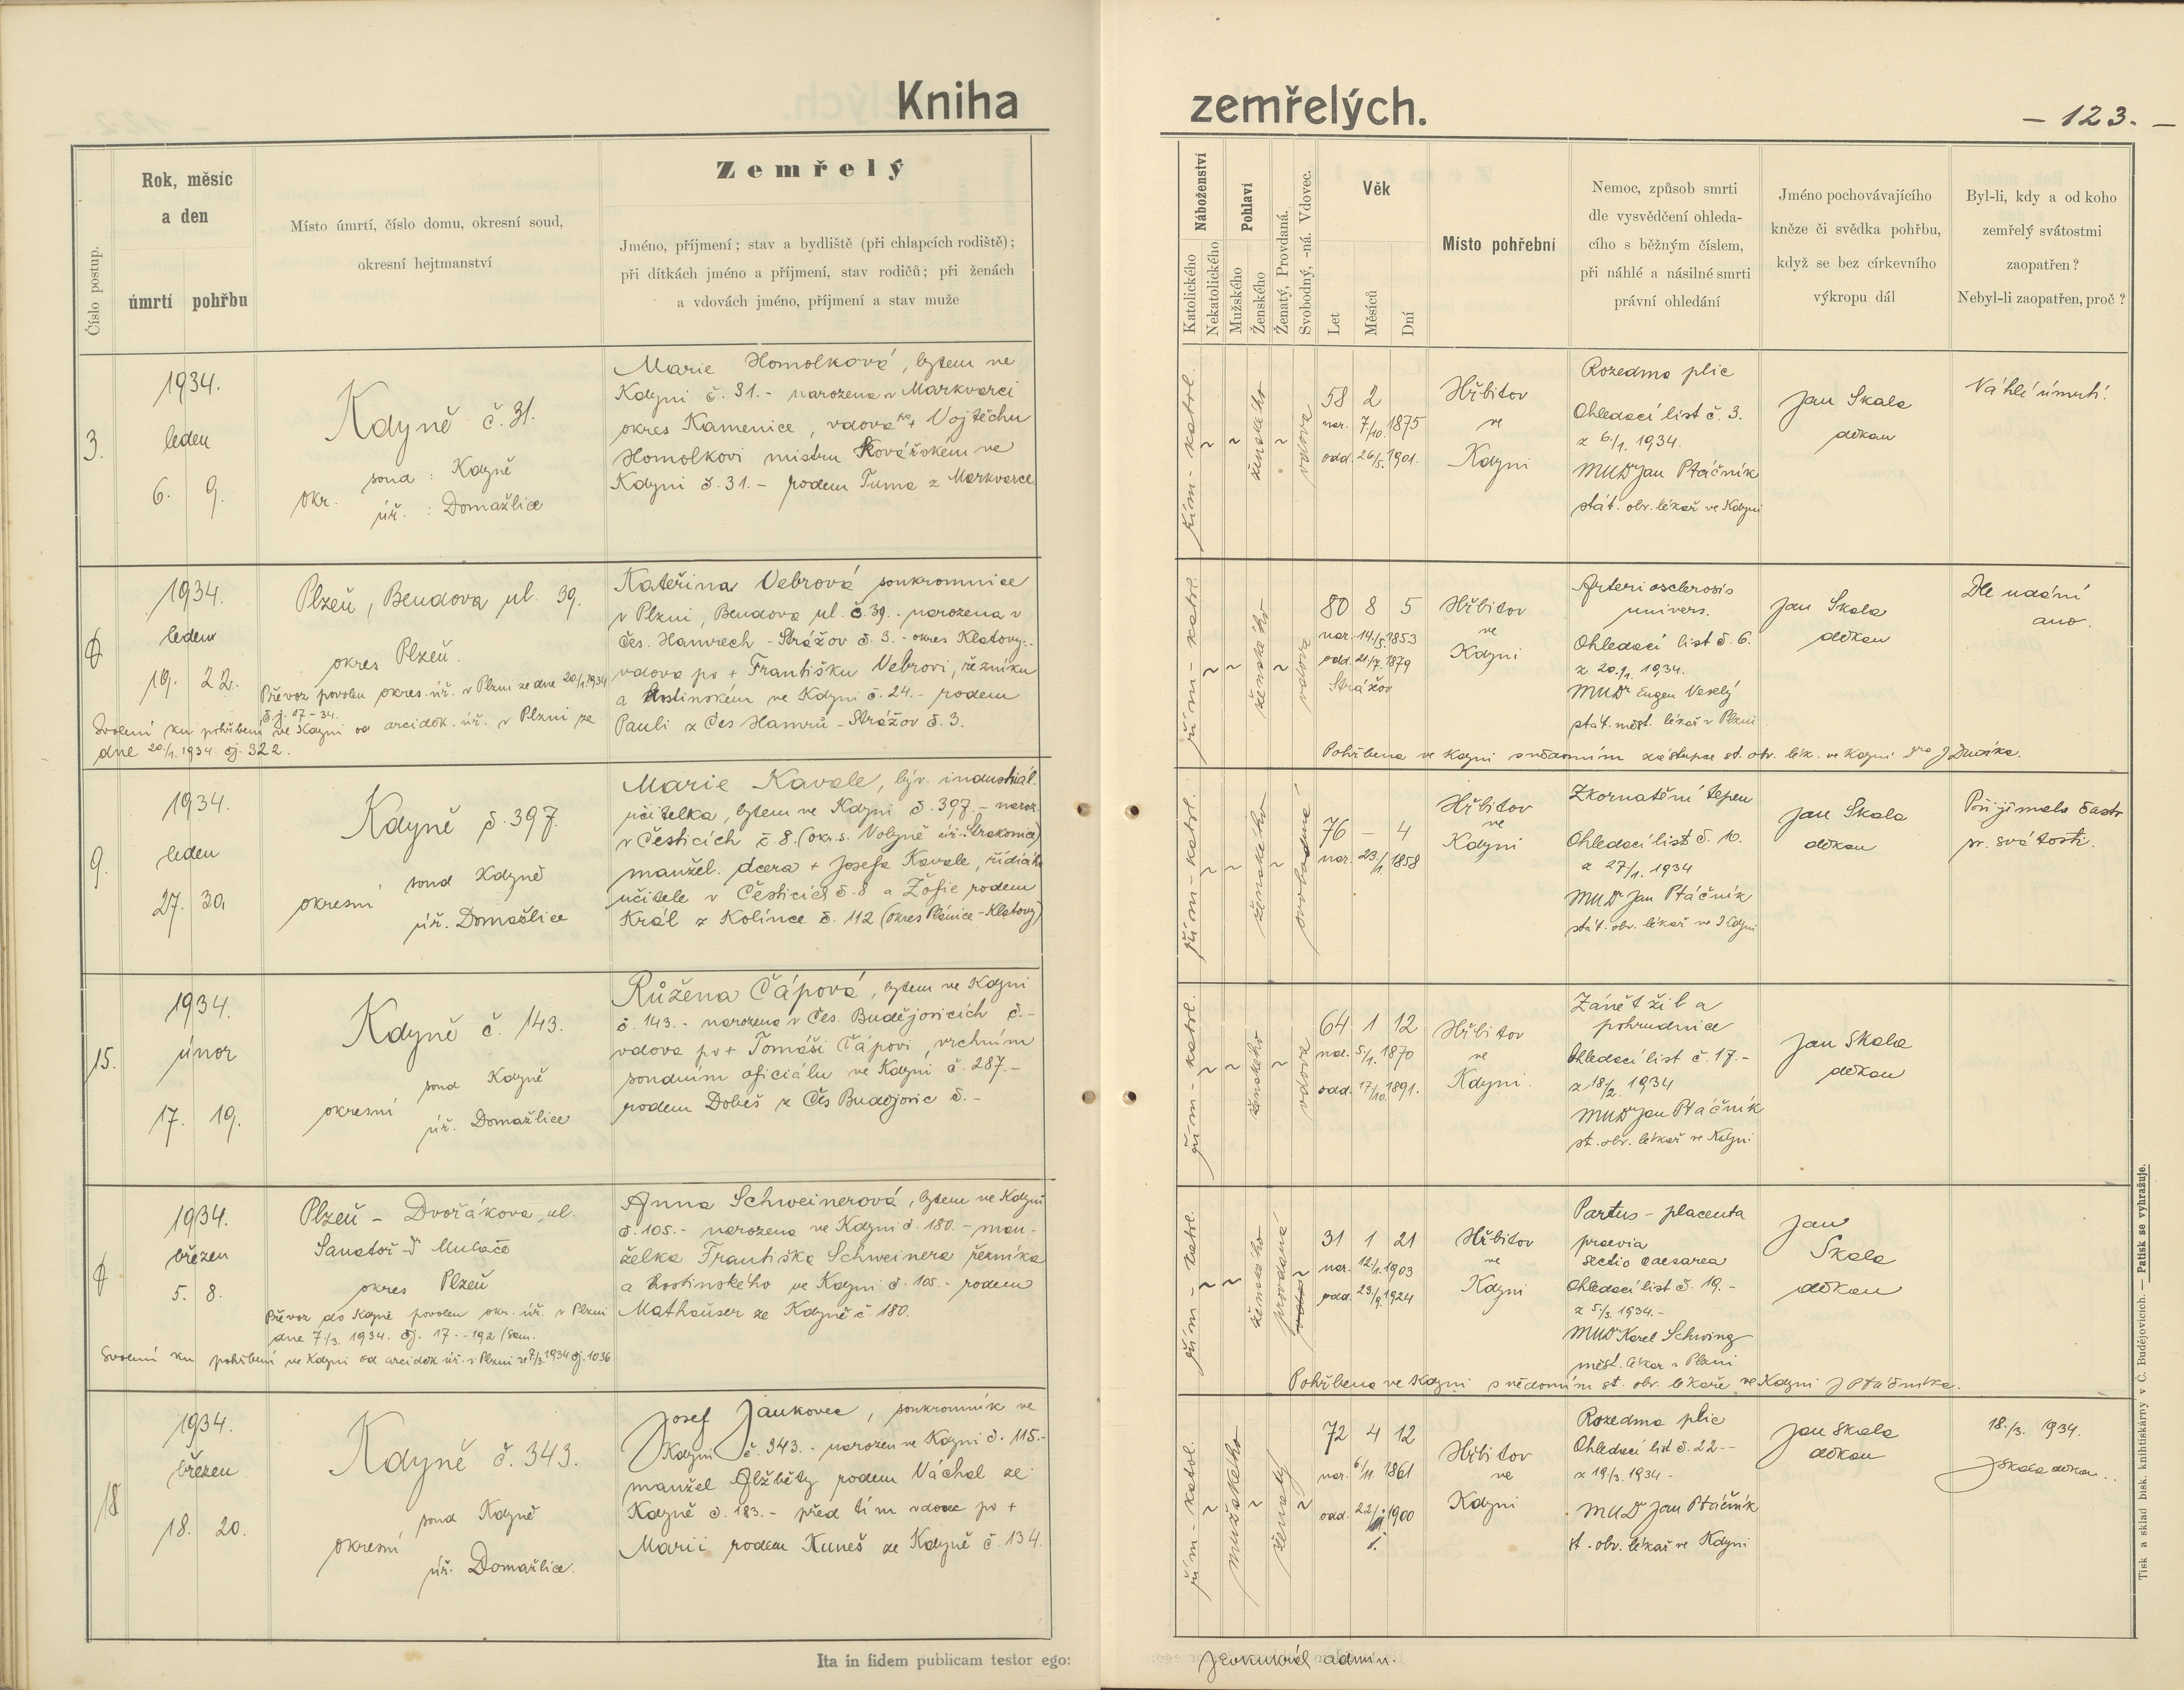 Kniha
zemřelých.
– 123. –
Číslo postup.
Rok, měsíc
a den
úmrtí
pohřbu
Místo úmrtí, číslo domu, okresní soud,
okresní hejtmanství
Zemřelý
Jméno, příjmení; stav a bydliště (při chlapcích rodiště);
při dítkách jméno a příjmení, stav rodičů; při ženách
a vdovách jméno, příjmení a stav muže
Náboženství
Katolického
Nekatolického
Pohlaví
Mužského
Ženského
Ženatý, Provdaná.
Svobodný, -ná. Vdovec.
Věk
Let
Měsíců
Dní
Místo pohřební
Nemoc, způsob smrti
dle vysvědčení ohleda-
cího s běžným číslem,
při náhlé a násilné smrti
právní ohledání
Jméno pochovávajícího
kněze či svědka pohřbu,
když se bez církevního
výkropu dál
Byl-li, kdy a od koho
zemřelý svátostmi
zaopatřen?
Nebyl-li zaopatřen, proč?
3.
1934.
leden
6. 9.
Kdyně č. 31.
soud : Kdyně
okr.
úř. : Domažlice
Marie Homolková, bytem ve
Kdyni č. 31. - narozena v Markvarci
okres Kamenice, vdova po + Vojtěchu
Homolkovi mistru kovářském ve
Kdyni č. 31. - rodem Tuma z Markvarce
řím - katol.
ženského
vdova
58 2
nar. 7/10. 1875
odd. 26/5. 1901.
Hřbitov
ve
Kdyni
Rozedma plic
Ohledací list č. 3.
z 6/1. 1934.
MUDr Jan Ptáčník
stát. obv. lékař ve Kdyni
Jan Skala
děkan
Náhlé úmrtí.
1934.
leden
19. 22.
Plzeň, Bendova ul. 39.
okres Plzeň.
Převoz povolen okres. úř. v Plzni ze dne 20/1. 1934
č.j. 17 - 34.
Svolení ku pohřbení ve Kdyni od arciděk. úř. v Plzni ze
dne 20/1. 1934 čj. 322.
Kateřina Vebrová soukromnice
v Plzni, Bendova ul. č. 39. - narozena v
Čes. Hamrech - Strážov č. 3. - okres Klatovy. -
vdova po + Františku Vebrovi, řezníku
a hostinském ve Kdyni č. 24. - rodem
Pauli z Čes Hamrů - Strážov č. 3.
řím - katol.
ženského
vdova
80 8 5
nar. 14/5. 1853
odd. 21/7. 1879
Strážov
Hřbitov
ve
Kdyni
Arteriosclerosis
univers.
Ohledací list č. 6.
z 20/1. 1934.
MUDr Eugen Veselý
stát. měst. lékař v Plzni
Jan Skala
děkan
Dle udání
ano.
Pohřbena ve Kdyni s vědomím zástupce st. obv. lék. ve Kdyni
9.
1934.
leden
27. 30.
Kdyně č. 397.
soud Kdyně
okresní
úř. Domažlice
Marie Kavale, býv. industriál.
učitelka, bytem ve Kdyni č. 397. - naroz.
v Česticích č 8. (okr. s. Volyně úř. Strakonice)
manžel. dcera + Josefa Kavale, řídícího
učitele v Česticích č. 8 a Žofie rodem
Král z Kolince č. 112 (okres Plánice - Klatovy)
řím - katol.
ženského
svobodná
76 – 4
nar. 23/1. 1858
Hřbitov
ve
Kdyni
Zkornatění tepen
Ohledací list č. 10.
z 27/1. 1934
MUDr Jan Ptáčník
stát. obv. lékař ve Kdyni
Jan Skala
děkan
Přijímala často
sv. svátosti.
15.
1934.
únor
17. 19.
Kdyně č. 143.
soud Kdyně
okresní
úř. Domažlice
Růžena Čápová, bytem ve Kdyni
č. 143. - narozena v Čes. Budějovicích č. -
vdova po + Tomáši Čápovi, vrchním
soudním oficiálu ve Kdyni č. 287. -
rodem Dobeš z Čes Budějovic č. -
řím - katol.
ženského
vdova
64 1 12
nar. 5/1. 1870
odd. 17/10. 1891.
Hřbitov
ve
Kdyni.
Zánět žil a
pohrudnice
Ohledací list č. 17. -
z 18/2. 1934
MUDr Jan Ptáčník
st. obv. lékař ve Kdyni
Jan Skala
děkan
1934.
březen
5. 8.
Plzeň - Dvořákova ul.
Sanatoř Dr Mulače
okres Plzeň
Převoz do Kdyně povolen okr. úř. v Plzni
dne 7/3. 1934. čj. 17. - 192/Sam.
Svolení ku pohřbení ve Kdyni od arciděk úř. v Plzni ze 7/3. 1934 čj. 1036
Anna Schweinerová, bytem ve Kdyni
č. 105. - narozena ve Kdyni č. 180. - man-
želka Františka Schweinera řezníka
a hostinského ve Kdyni č. 105. - rodem
Mathauser ze Kdyně č 180.
řím - katol.
ženského
provdaná
31 1 21
nar. 12/1. 1903
odd. 23/9. 1924
Hřbitov
ve
Kdyni
Partus - placenta
praevia
sectio caesarea
Ohledací list č. 19. -
z 5/3. 1934. -
MUDr Karel Schwing
měst. lékař v Plzni
Jan
Skala
děkan
Pohřbena ve Kdyni s vědomím st. obv. lékaře ve Kdyni J Ptáčníka.
18
1934.
březen
18. 20.
Kdyně č. 343.
soud Kdyně
okresní
úř. Domažlice.
Josef Jankovec, soukromník ve
Kdyni č. 343. - narozen ve Kdyni č. 115. -
manžel Alžběty rodem Váchal ze
Kdyně č. 183. - před tím vdovec po +
Marii rodem Kuneš ze Kdyně č. 134.
řím - katol.
mužského
ženatý
72 4 12
nar. 6/11. 1861
odd. 22/1. 1900
Hřbitov
ve
Kdyni
Rozedma plic
Ohledací list č. 22 - -
z 19/3. 1934 -
MUDr Jan Ptáčník
st. obv. lékař ve Kdyni
Jan Skala
děkan
18./3. 1934.
J Skala děkan.
Ita in fidem publicam testor ego:
admin.
Tisk a sklad bisk. knihtiskárny v Č. Budějovicích. — Patisk se vyhražuje.